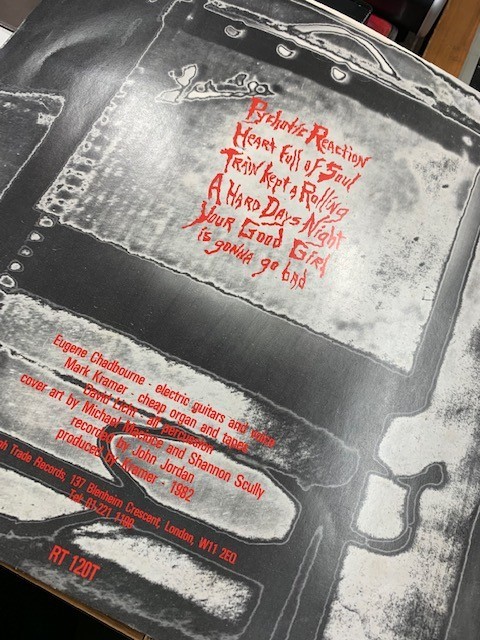 Psychotic Reaction
Heart Full of Soul
Train Kept a Rolling
A Hard Days Night
Your Good Girl
is gonna go bad
Eugene Chadbourne - electric guitars and voice
Mark Kramer - cheap organ and tapes
David Licht - all percussion
cover art by Michael Macioce and Shannon Scully
recorded by John Jordan
produced by Kramer - 1982
Trade Records, 137 Blenheim Crescent, London, W11 2EQ
Tel: 01-221 1100
RT 120T